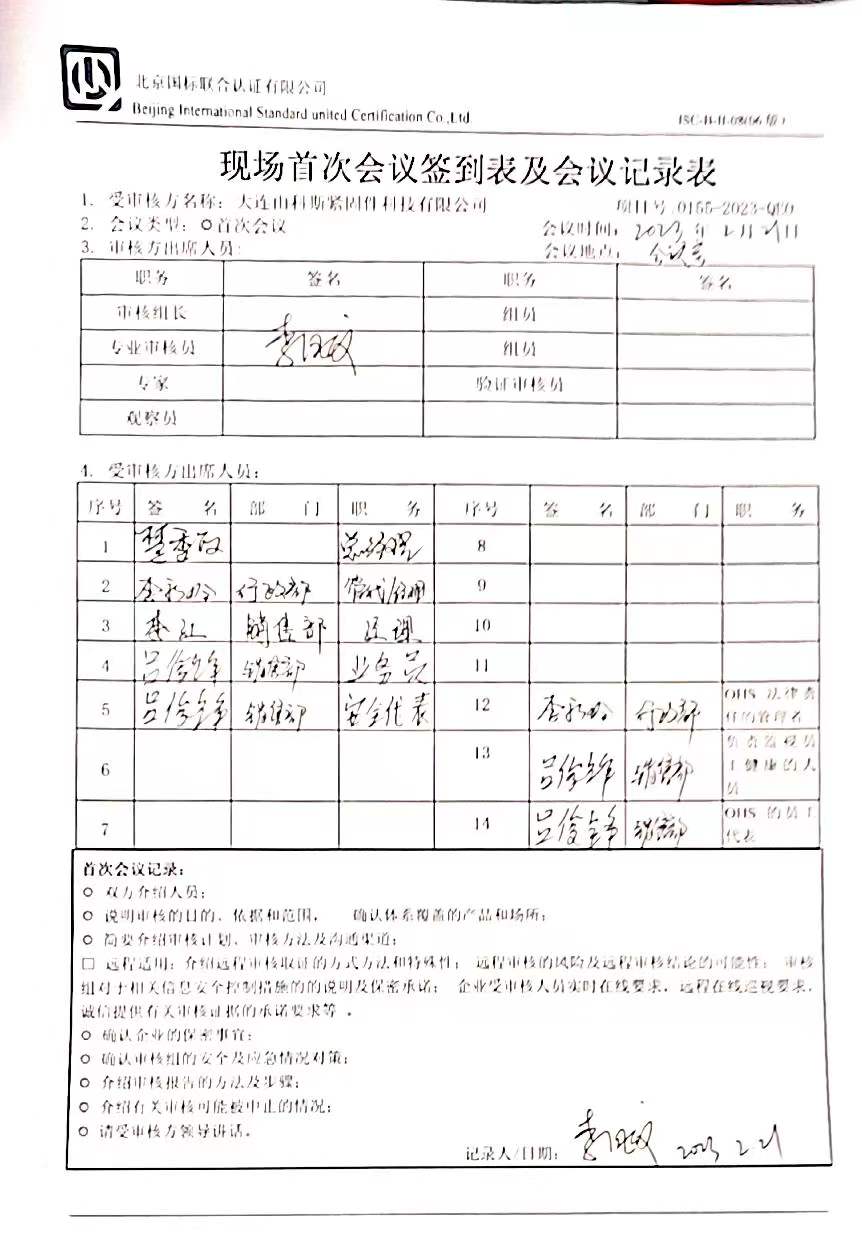 北京国标联合认证有限公司
Beijing International Standard united Certification Co.,Ltd.
ISC-B-II-08(06版)
现场首次会议签到表及会议记录表
1. 受审核方名称：大连山科斯紧固件科技有限公司 项目号:0155-2023-QEO
2. 会议类型：首次会议 会议时间：2023年2月21日
3. 审核方出席人员: 会议地点：会议室
职务 签名 职务 签名
审核组长 组员
专业审核员 组员
专家 验证审核员
观察员
4. 受审核方出席人员：
序号 签 名 部 门 职 务 序号 签 名 部 门 职 务
1 总经理 8
2 李新玲 行政部 管代/经理 9
3 李江 销售部 经理 10
4 销售部 业务员 11
5 销售部 安全代表 12 李新玲 行政部 OHS 法律责任的管理者
6 13 销售部 负责监视员工健康的人员
7 14 销售部 OHS 的员工代表
首次会议记录：
双方介绍人员；
说明审核的目的、依据和范围， 确认体系覆盖的产品和场所；
简要介绍审核计划、审核方法及沟通渠道；
□ 远程适用：介绍远程审核取证的方式方法和特殊性； 远程审核的风险及远程审核结论的可能性； 审核
组对于相关信息安全控制措施的的说明及保密承诺； 企业受审核人员实时在线要求，远程在线巡视要求，
诚信提供有关审核证据的承诺要求等 。
确认企业的保密事宜；
确认审核组的安全及应急情况对策；
介绍审核报告的方法及步骤；
介绍有关审核可能被中止的情况；
请受审核方领导讲话。
记录人/日期： 2023 2-21